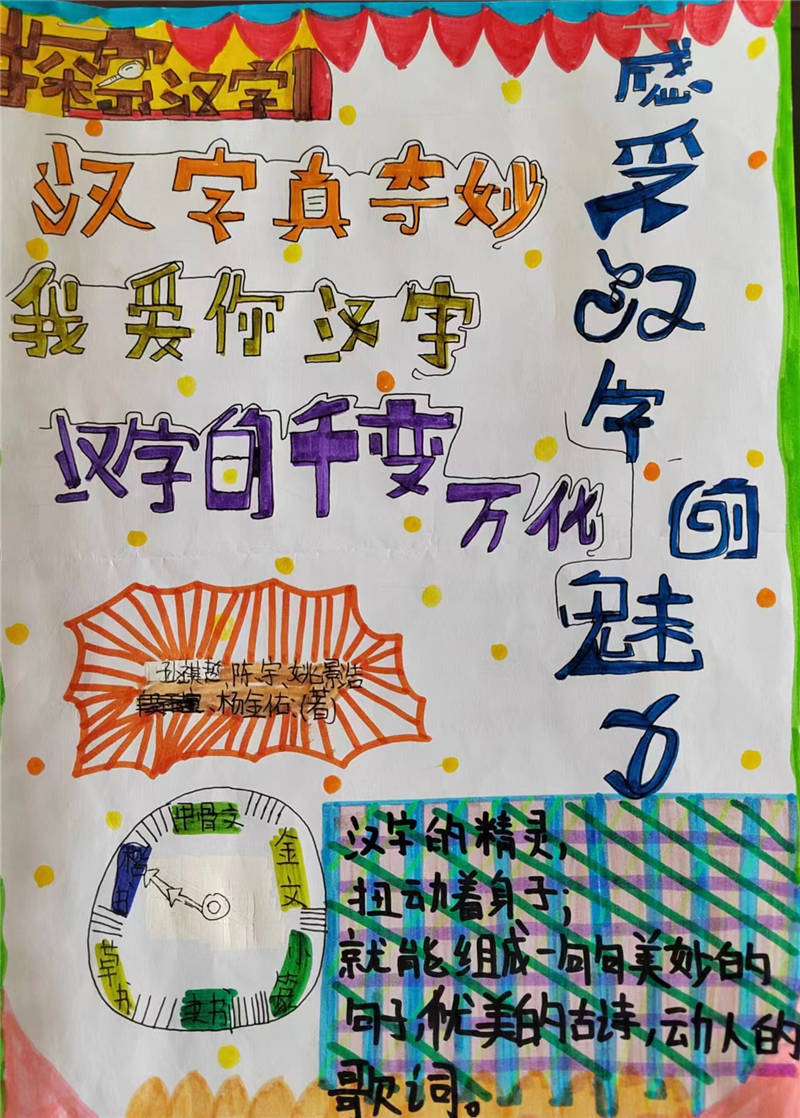 探密汉字
感受汉字的魅力
汉字真奇妙
我爱你汉字
汉字的千变
万化
孙祺越、陈宇、姚景浩
、杨金佑、(著)
甲骨文
金文
小篆
隶书
草书
楷书
汉字的精灵，
扭动着身子；
就能组成一句句美妙的
句子，优美的古诗，动人的
歌词。